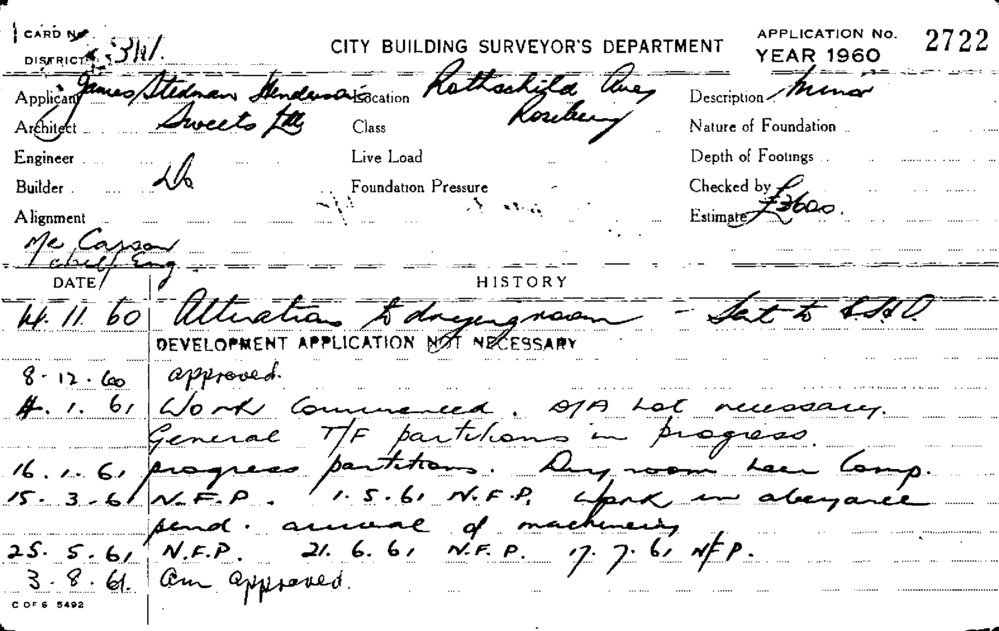 CARD No.
DISTRICT
CITY BUILDING SURVEYOR'S DEPARTMENT
APPLICATION No. 2722
YEAR 1960
Applicant James Stedman Henderson's Location Rothschild Ave, Description Minor
Architect Sweets Ltd Class Rosebery Nature of Foundation
Engineer Live Load Depth of Footings
Builder Do Foundation Pressure Checked by
Alignment Estimate £3600.
Mr Carson
Chief Eng
DATE HISTORY
14.11.60 Alterations to drying room - Sent to
DEVELOPMENT APPLICATION NOT NECESSARY
8-12-60 approved.
4.1.61 Work Commenced. D/A not necessary.
General T/F partitions in progress.
16.1.61 progress partitions. Dry room Comp.
15.3.61 N.F.P. 1.5.61 N.F.P. Work in abeyance
pend. arrival of machinery
25.5.61 N.F.P. 21.6.61 N.F.P. 17.7.61 NFP.
3.8.61. am approved.
C OF S 5492